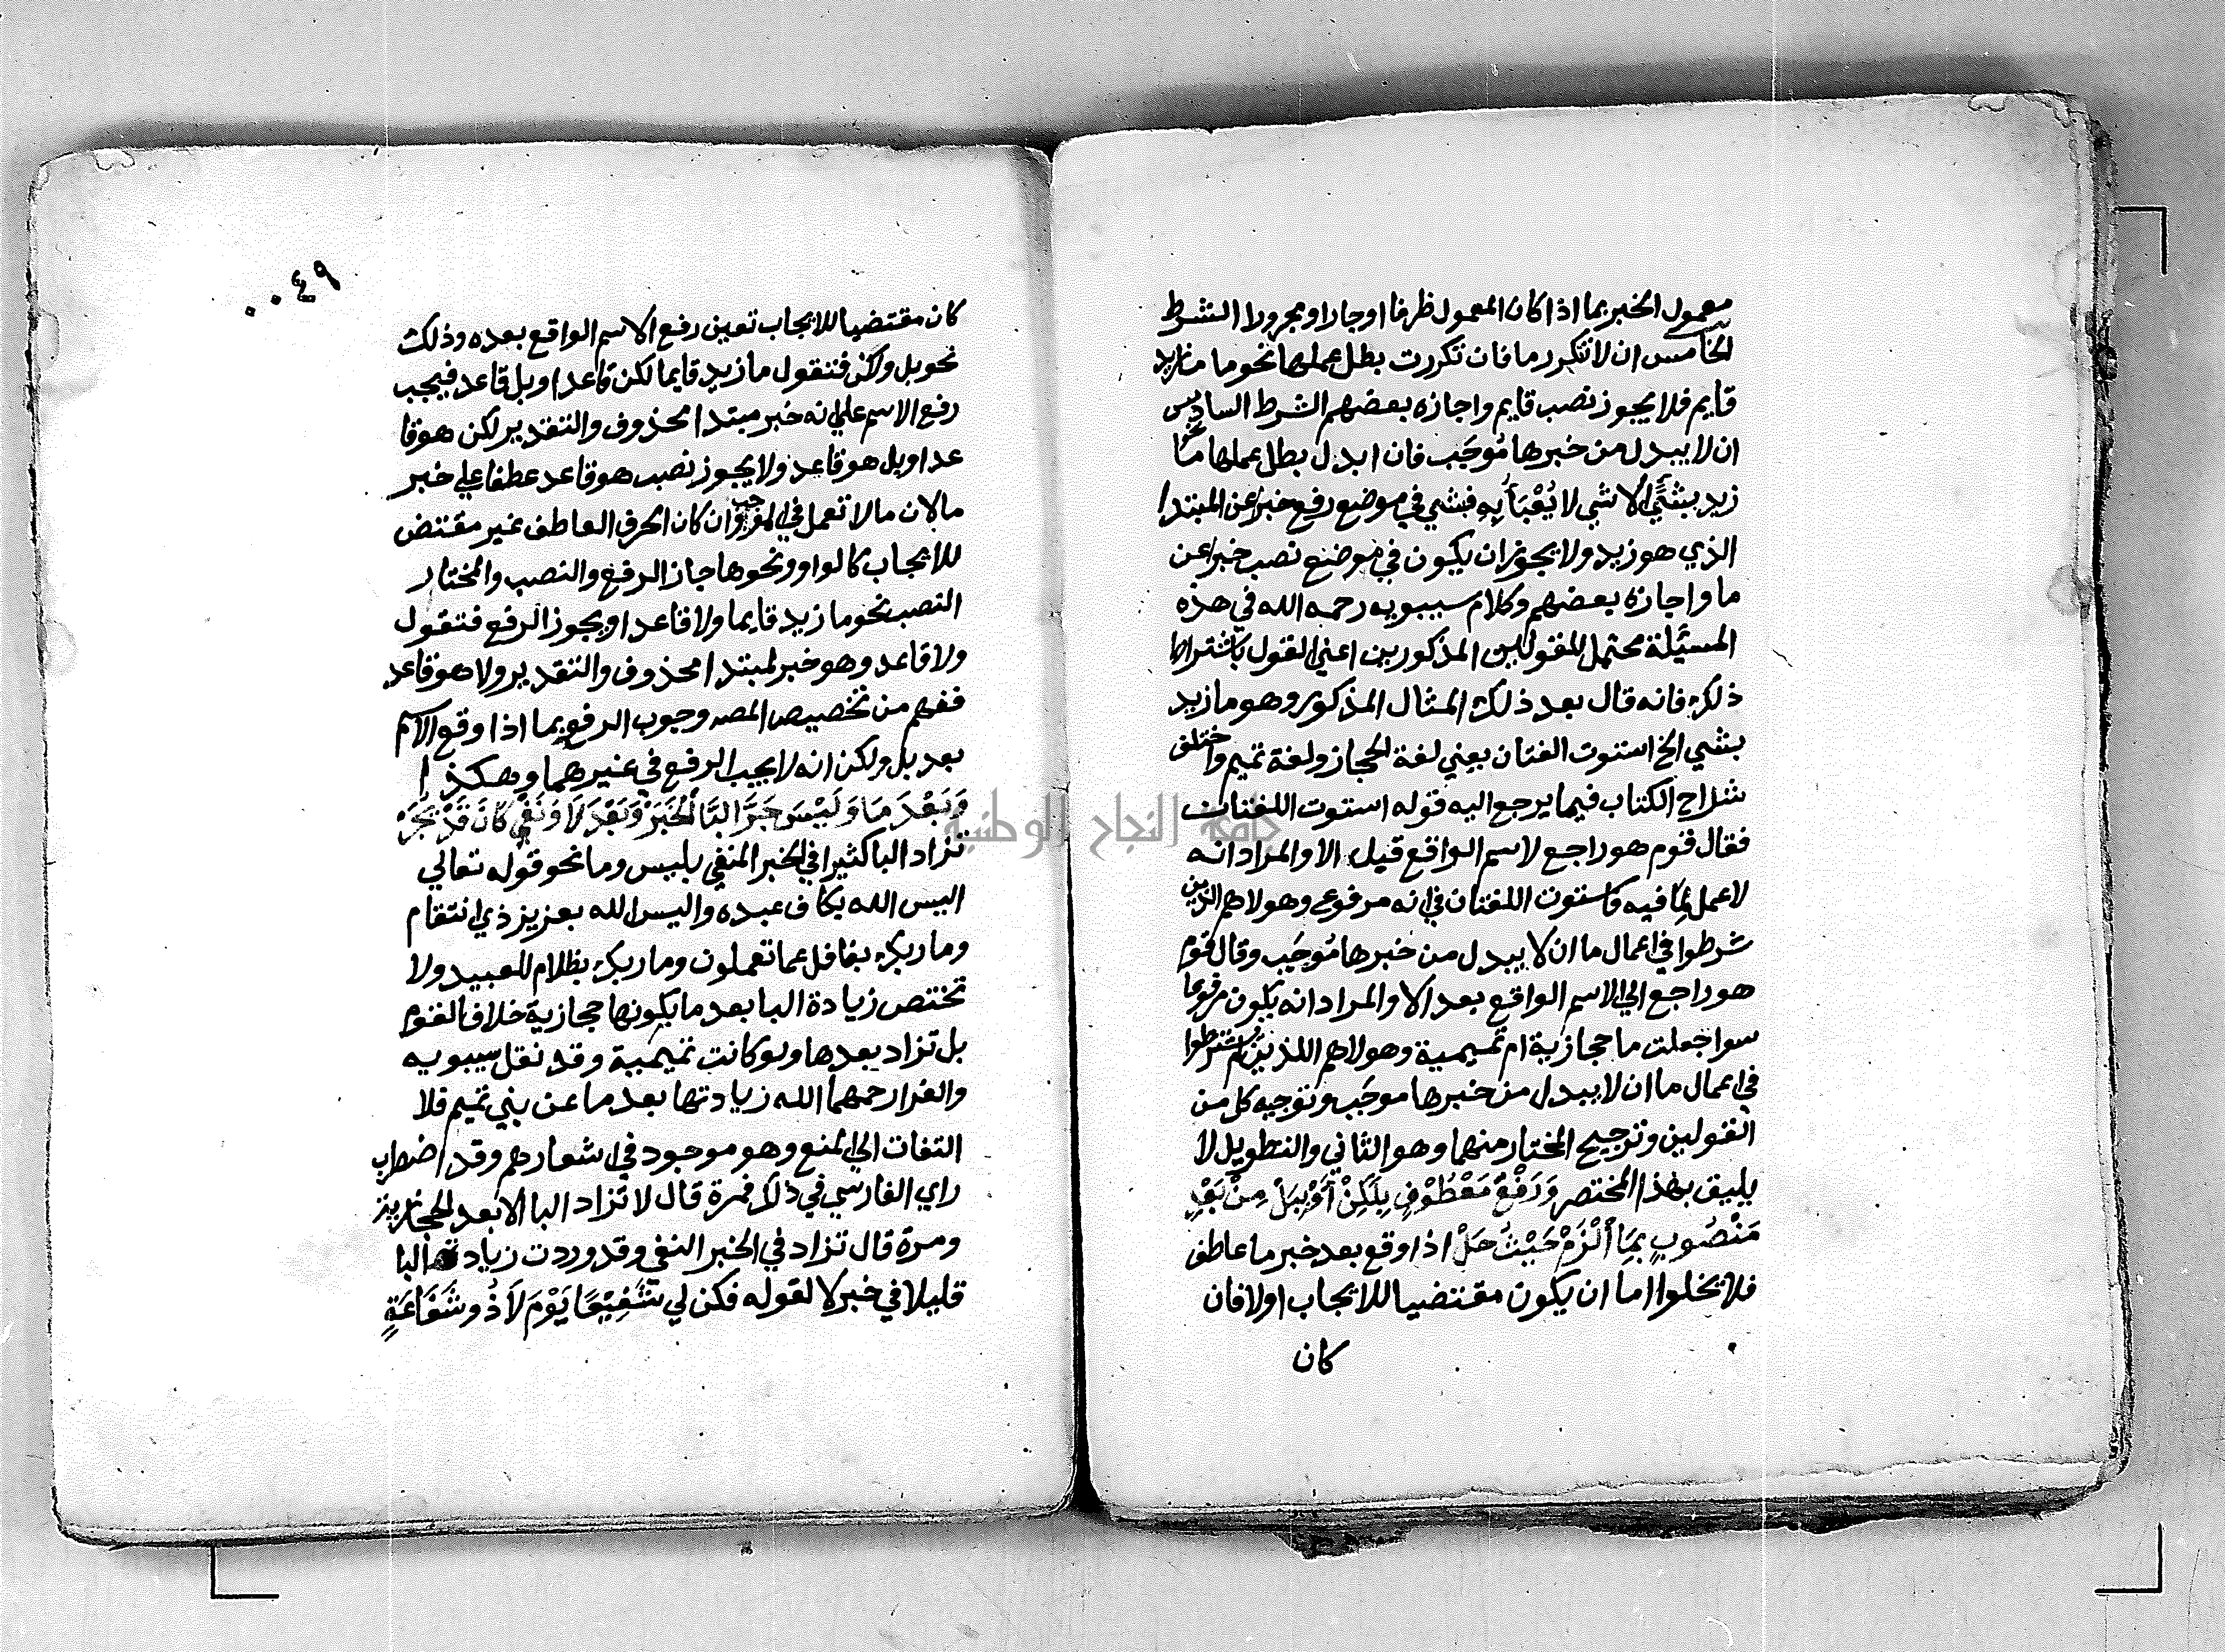 معمول الخبر بما اذا كان المعمول ظرفا او جارا ومجرورا الشرط
الخامس ان لا تتكرر ما فان تكررت بطل عملها نحو ما ما زيد
قايم فلا يجوز نصب قايم واجازه بعضهم الشرط السادس
ان لا يبدل من خبرها مُوجَب فان ابدل بطل عملها نحو ما
زيد بشئ الا شي لا يُعْبَأ به فبشي في موضع رفع خبر عن المبتدا
الذي هو زيد ولا يجوز ان يكون في موضع نصب خبرا عن
ما واجازه بعضهم وكلام سيبويه رحمه الله في هذه
المسئلة محتمل للقولين المذكورين اعني القول باشتراط
ذلك فانه قال بعد ذلك المثال المذكور وهو ما زيد
بشي الخ استوت اللغتان يعني لغة الحجاز ولغة تميم واختلف
شراح الكتاب فيما يرجع اليه قوله استوت اللغتان
فقال قوم هو راجع لاسم الواقع قبل الا والمراد انه
لا عمل لما فيه فاستوت اللغتان في انه مرفوع وهولاهم الذين
شرطوا في اعمال ما ان لا يبدل من خبرها مُوجَب وقال قوم
هو راجع الي الاسم الواقع بعد الا والمراد انه يكون مرفوعا
سوا جعلت ما حجازية ام تميمية وهولاهم اللذين لم يشترطوا
في اعمال ما ان لا يبدل من خبرها موجَب وتوجيه كل من
القولين وترجيح المختار منهما وهو الثاني والتطويل لا
يليق بهذا المختصر وَرَفْعَ مَعْطُوْفٍ بِلَكِنْ أَوْ بِبَلْ مِنْ بَعْدِ
مَنْصُوبٍ بِمَا أَلْزَمْ حَيْثُ حَلّ اذا وقع بعد خبر ما عاطف
فلا يخلوا اما ان يكون مقتضيا للايجاب اولا فان
كان
٠٠٤٩
كان مقتضيا للايجاب تعين رفع الاسم الواقع بعده وذلك
نحو بل ولكن فتقول ما زيد قايما لكن قاعد او بل قاعد فيجب
رفع الاسم علي انه خبر مبتدا محذوف والتقدير لكن هو قا
عد او بل هو قاعد ولا يجوز نصب هو قاعد عطفا علي خبر
ما لان ما لا تعمل في الموجب وان كان الحرف العاطف غير مقتض
للايجاب كالواو ونحوها جاز الرفع والنصب والمختار
النصب نحو ما زيد قايما ولا قاعدا ويجوز الرفع فتقول
ولا قاعد وهو خبر لمبتدا محذوف والتقدير ولا هو قاعد
ففهم من تخصيص المص وجوب الرفع بما اذا وقع الاسم
بعد بل ولكن انه لا يجب الرفع في غيرهما وهكذا
وَبَعْدَ مَا وَلَيْسَ جَرَّ البَا الْخَبَرْ وَبَعْدَ لَا وَنَفْيِ كَانَ قَدْ يُجَرْ
تزاد البا كثيرا في الخبر المنفي بليس وما نحو قوله تعالي
اليس الله بكاف عبده واليس الله بعزيز ذي انتقام
وما ربك بغافل عما تعملون وما ربك بظلام للعبيد ولا
تختص زيادة البا بعد ما بكونها حجازية خلافا لقوم
بل تزاد بعدها ولو كانت تميمية وقد نقل سيبويه
والفرا رحمهما الله زيادتها بعد ما عن بني تميم فلا
التفات الي المنع وهو موجود في اشعارهم وقد اضطرب
راي الفارسي في ذلك فمرة قال لا تزاد البا الا بعد الحجازية
ومرة قال تزاد في الخبر النفي وقد وردت زيادة البا
قليلا في خبر لا لقوله فكن لي شَفِيْعًا يَوْمَ لَا ذُو شَفَاعَةٍ
جامعة النجاح الوطنية